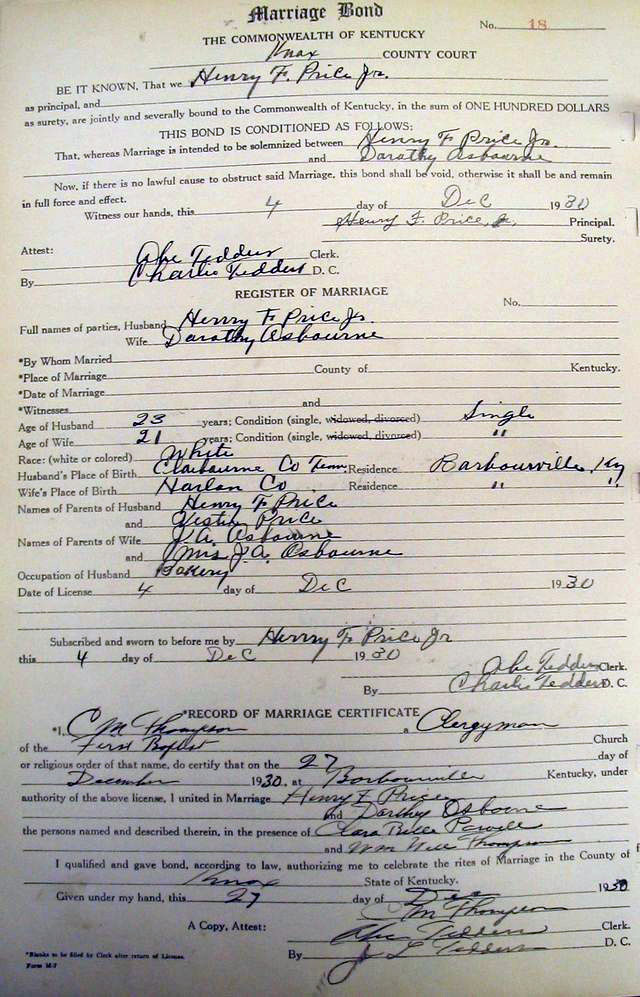 Marriage Bond
No. 18
THE COMMONWEALTH OF KENTUCKY
Knox COUNTY COURT
BE IT KNOWN, That we Henry F. Price Jr.
as principal, and
as surety, are jointly and severally bound to the Commonwealth of Kentucky, in the sum of ONE HUNDRED DOLLARS
THIS BOND IS CONDITIONED AS FOLLOWS:
That, whereas Marriage is intended to be solemnized between Henry F Price Jr.
and Dorathy Asbourne
Now, if there is no lawful cause to obstruct said Marriage, this bond shall be void, otherwise it shall be and remain
in full force and effect.
Witness our hands, this 4 day of Dec 1930
Henry F. Price, Jr. Principal.
Surety.
Attest:
Abe Tedders Clerk.
By Charlie Tedders D. C.
REGISTER OF MARRIAGE
No.
Full names of parties, Husband Henry F Price Jr
Wife Dorathy Asbourne
*By Whom Married
*Place of Marriage County of Kentucky.
*Date of Marriage
*Witnesses and
Age of Husband 23 years; Condition (single, widowed, divorced) Single
Age of Wife 21 years; Condition (single, widowed, divorced) "
Race: (white or colored) White
Husband's Place of Birth Claibourne Co Tenn Residence Barbourville, Ky
Wife's Place of Birth Harlan Co Residence " "
Names of Parents of Husband Henry F Price
and Price
Names of Parents of Wife J.A. Osbourne
and Mrs J.A. Osbourne
Occupation of Husband Bakery
Date of License 4 day of Dec 1930
Subscribed and sworn to before me by Henry F Price Jr
this 4 day of Dec 1930
Abe Tedders Clerk.
By Charlie Tedders D. C.
*RECORD OF MARRIAGE CERTIFICATE
*I, C M Thompson a Clergyman
of the First Baptist Church
or religious order of that name, do certify that on the 27 day of
December 1930, at Barbourville Kentucky, under
authority of the above license, I united in Marriage Henry F Price
and Dorthey Osborne
the persons named and described therein, in the presence of Clara Belle Powell
and Wm Will Thompson
I qualified and gave bond, according to law, authorizing me to celebrate the rites of Marriage in the County of
Knox State of Kentucky.
Given under my hand, this 27 day of Dec 1930
C M Thompson
A Copy, Attest: Abe Tedders Clerk.
By J L Tedders D. C.
*Blanks to be filled by Clerk after return of License.
Form M-7